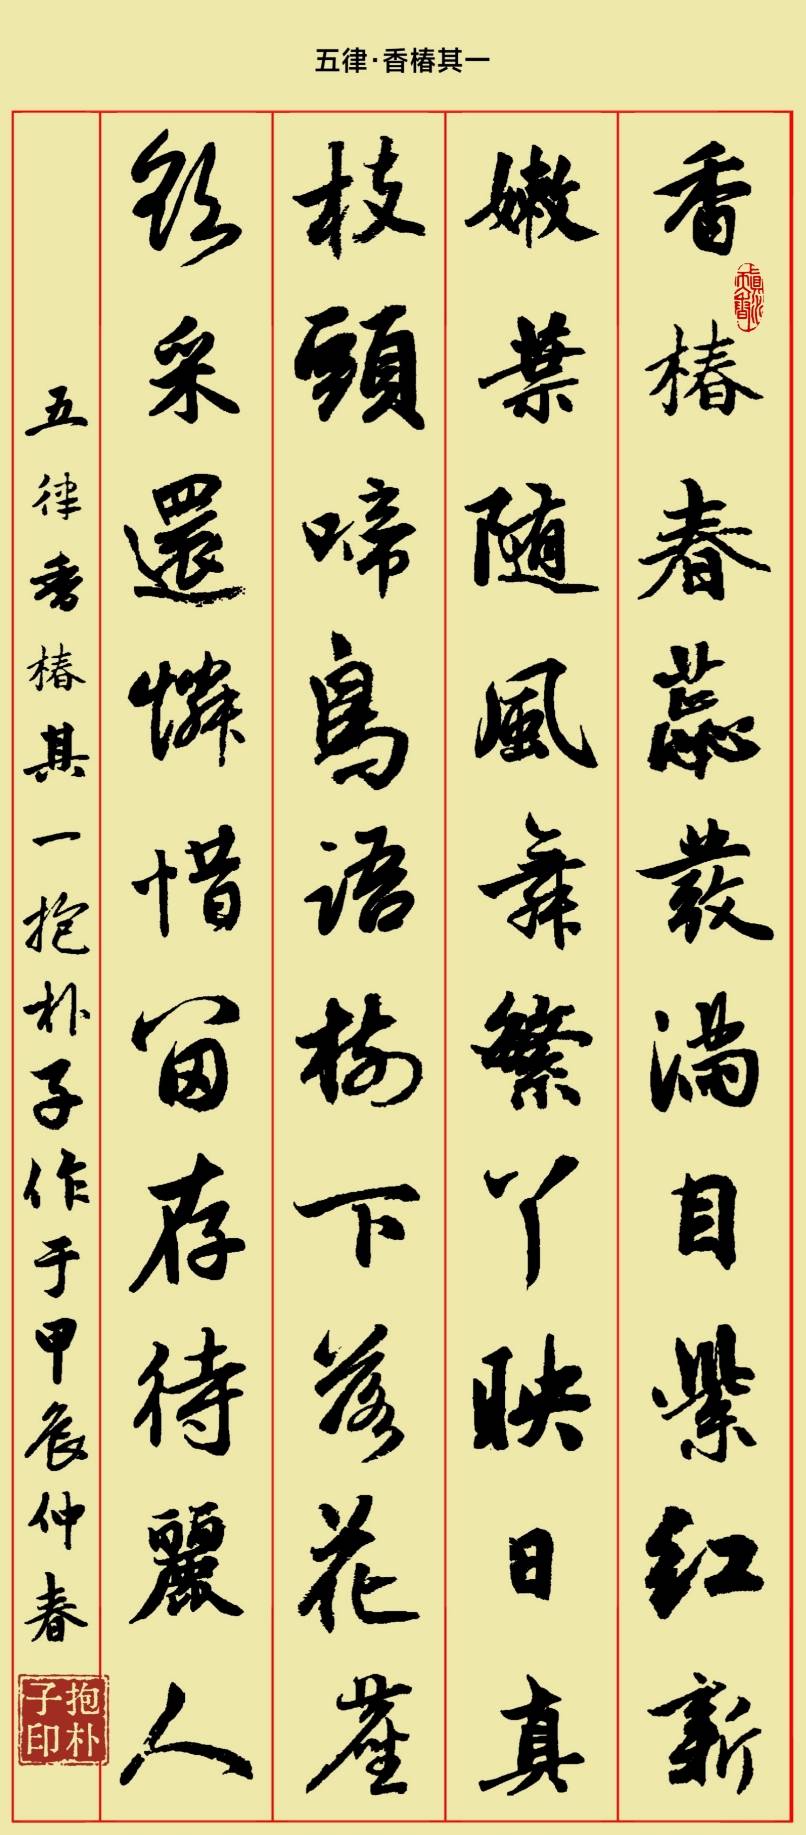 五律·香椿其一
香椿春蕊發满目紫红新
嫩葉随風舞繁丫映日真
枝頭啼鳥语樹下落花塵
欲采還憐惜留存待麗人
五律香椿其一抱朴子作于甲辰仲春
抱朴子印